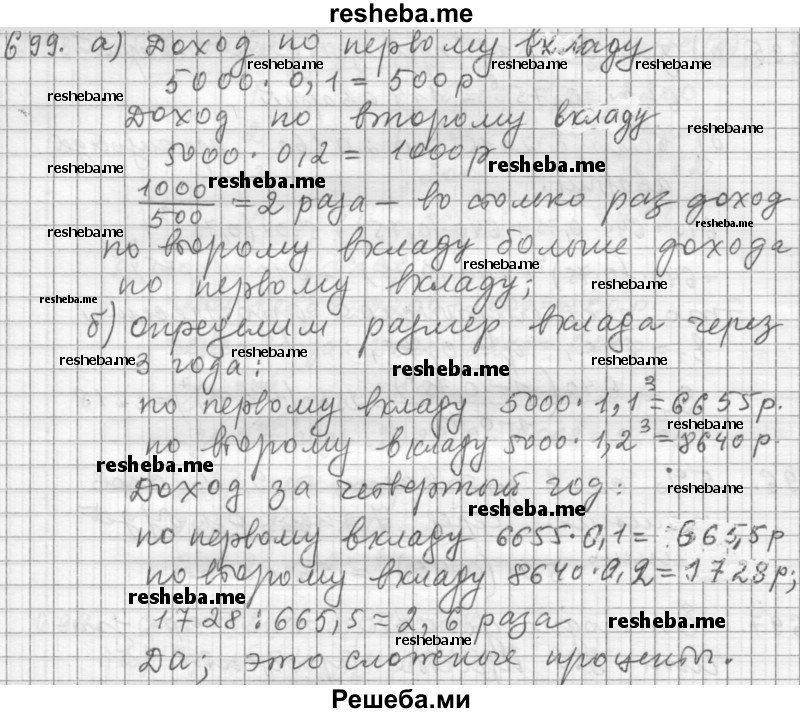 resheba.me
699. а) Доход по первому вкладу
resheba.me resheba.me resheba.me
5000 · 0,1 = 500р
resheba.me
Доход по второму вкладу
resheba.me
5000 · 0,2 = 1000р
resheba.me resheba.me
resheba.me
1000/500 = 2 раза – во столько раз доход
resheba.me resheba.me
по второму вкладу больше дохода
resheba.me
по первому вкладу;
resheba.me resheba.me
б) определим размер вклада через
resheba.me resheba.me resheba.me
3 года:
resheba.me
по первому вкладу 5000 · 1,1³ = 6655р.
resheba.me
по второму вкладу 5000 · 1,2³ = 8640р
resheba.me
Доход за четвертый год:
resheba.me
resheba.me
по первому вкладу 6655 · 0,1 = 665,5р
по второму вкладу 8640 · 0,2 = 1728р;
resheba.me
1728 : 665,5 ≈ 2,6 раза
resheba.me
resheba.me
Да; это сложные проценты.
Решеба.ми